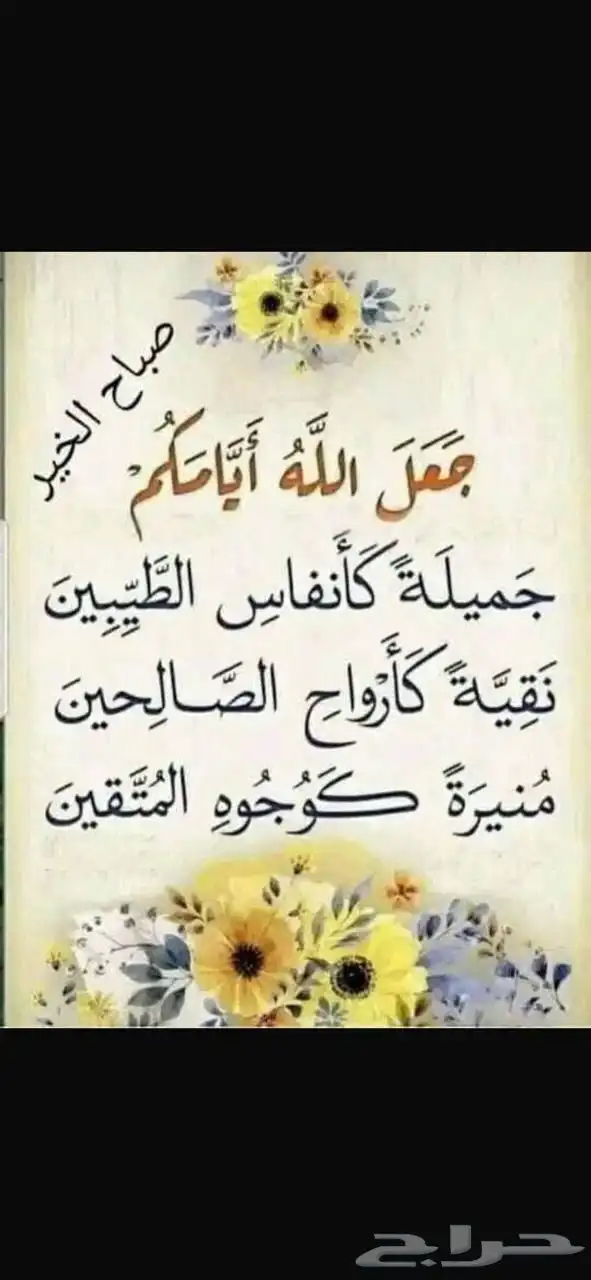 صباح الخير
جَعَلَ اللَّهُ أَيَّامَكُمْ
جَميلَةً كَأَنفاسِ الطَّيِّبِينَ
نَقِيَّةً كَأَرْواحِ الصَّالِحينَ
مُنيرَةً كَوُجُوهِ المُتَّقينَ
حراج